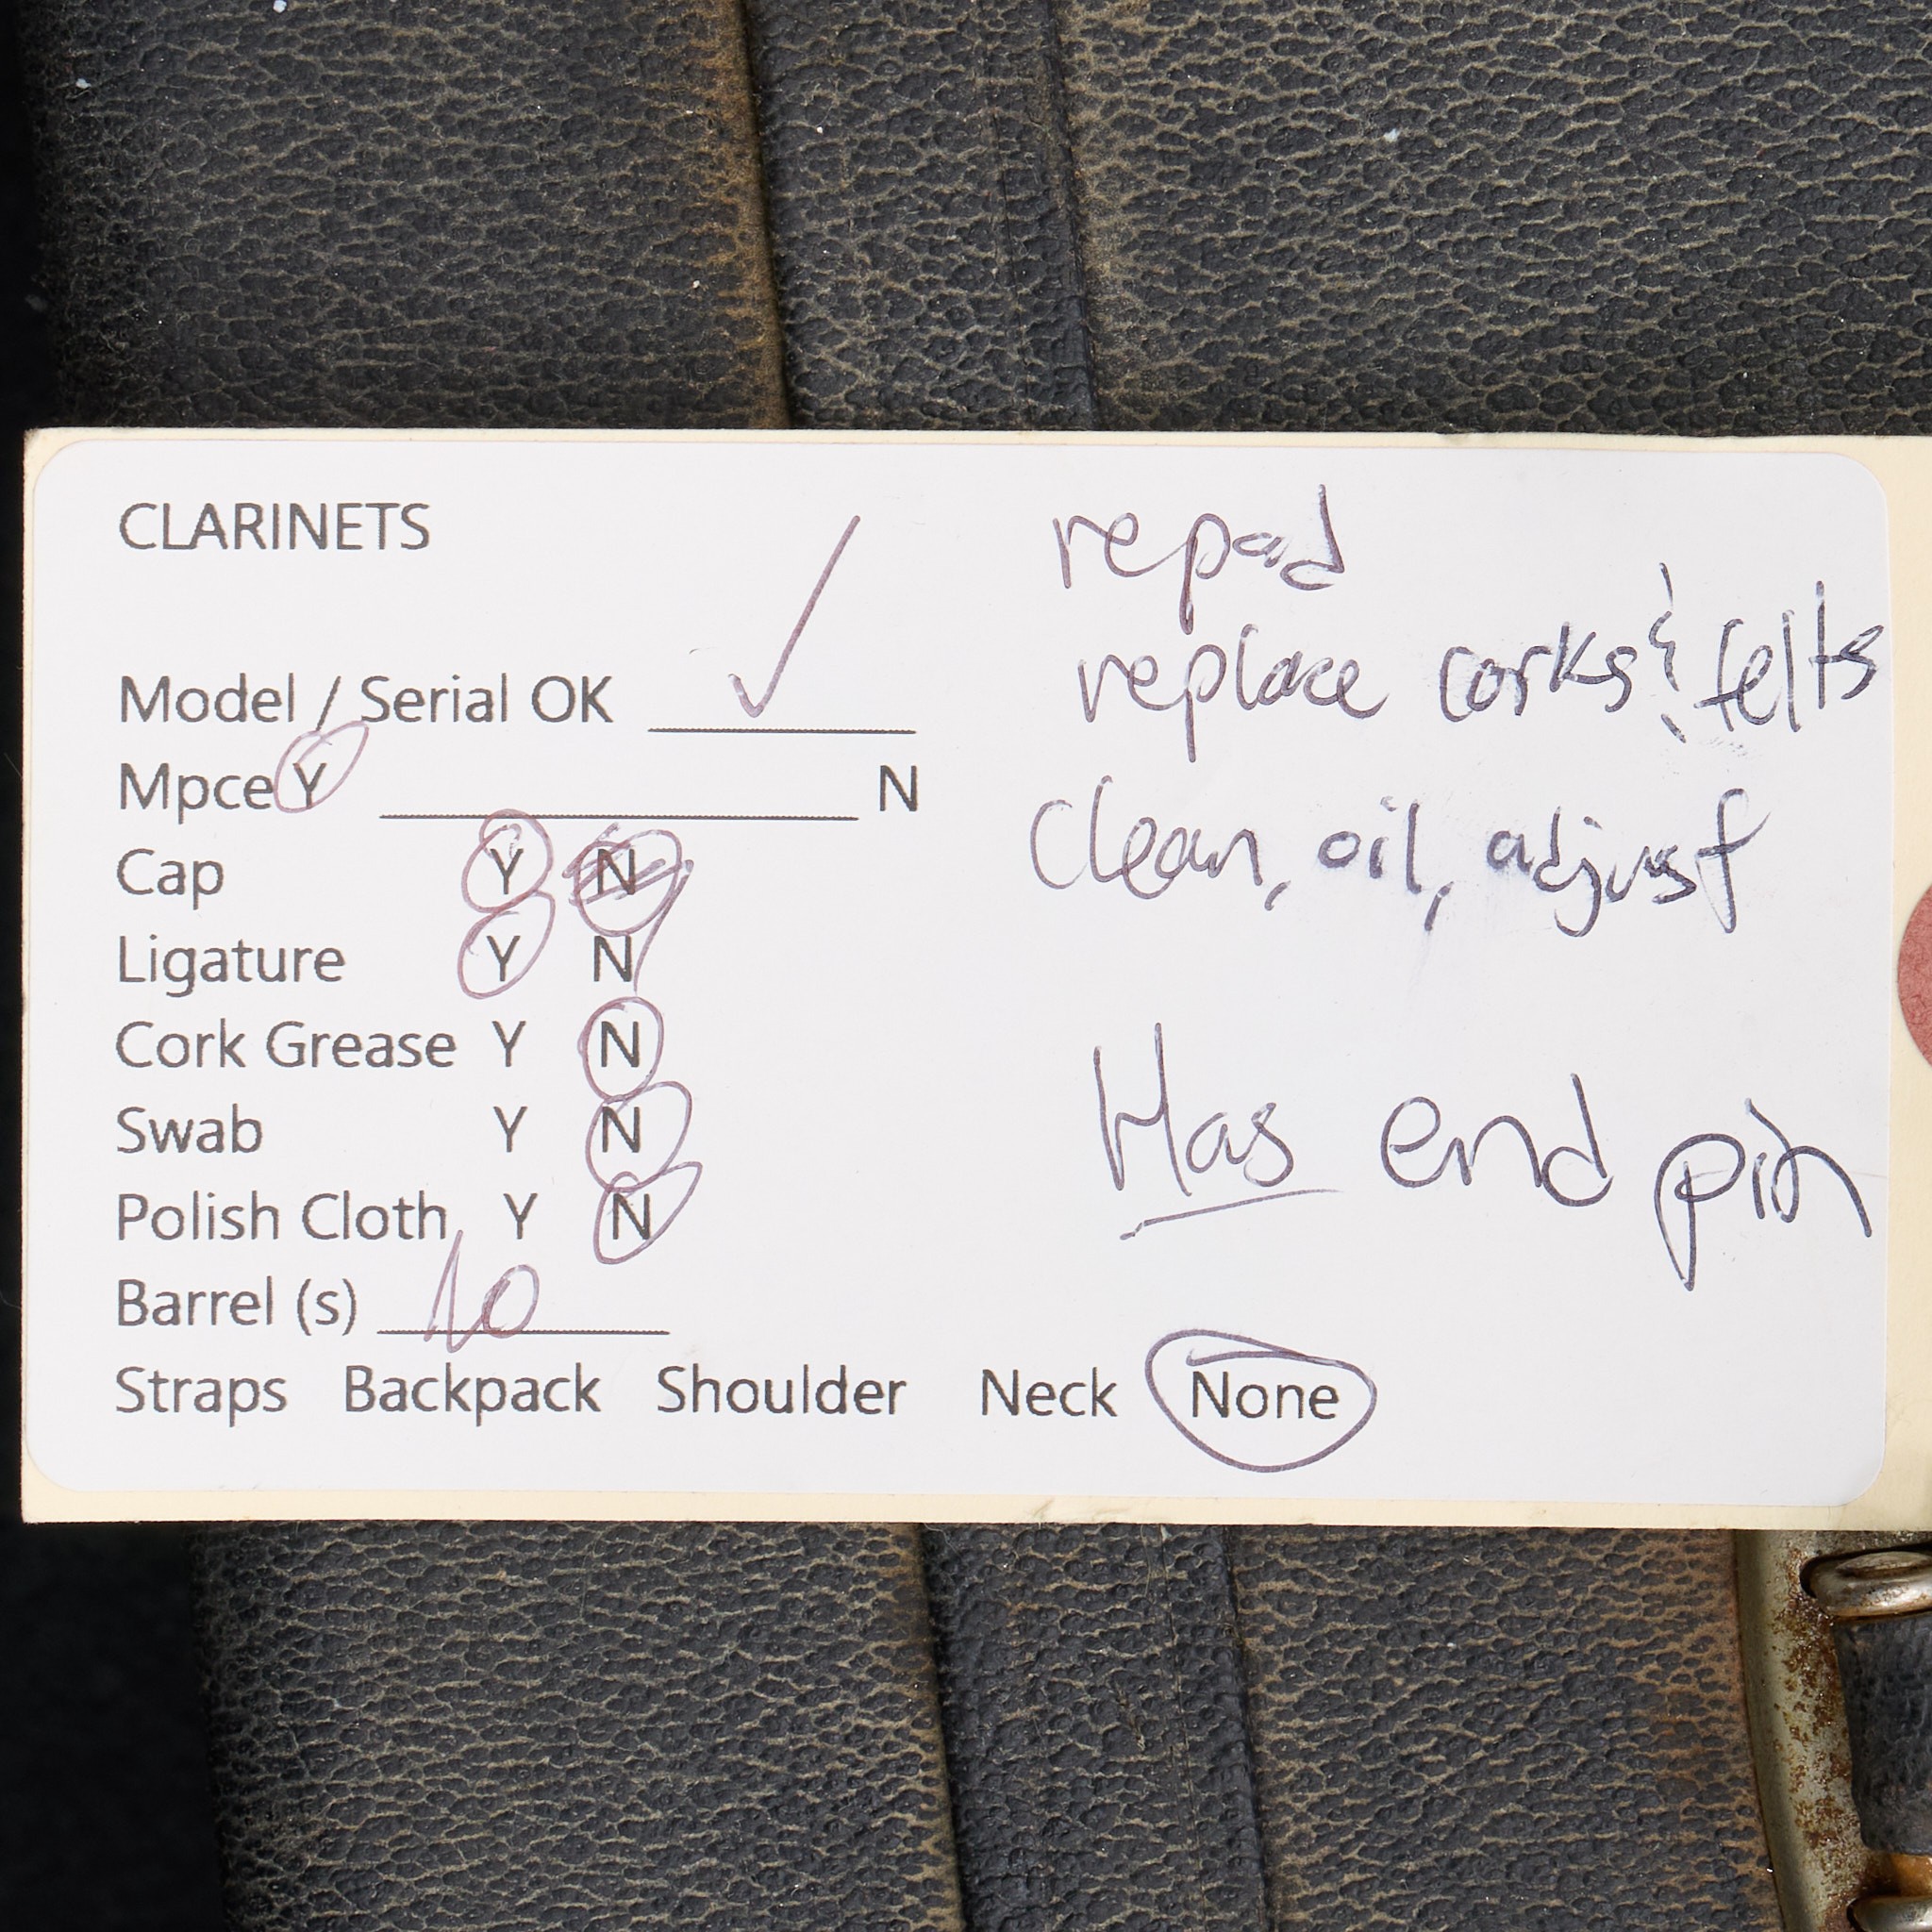 CLARINETS
Model / Serial OK ✓
Mpce Y N
Cap Y N
Ligature Y N
Cork Grease Y N
Swab Y N
Polish Cloth Y N
Barrel (s)
Straps Backpack Shoulder Neck None
repad
replace corks & felts
Clean, oil, adjust
Has end pin